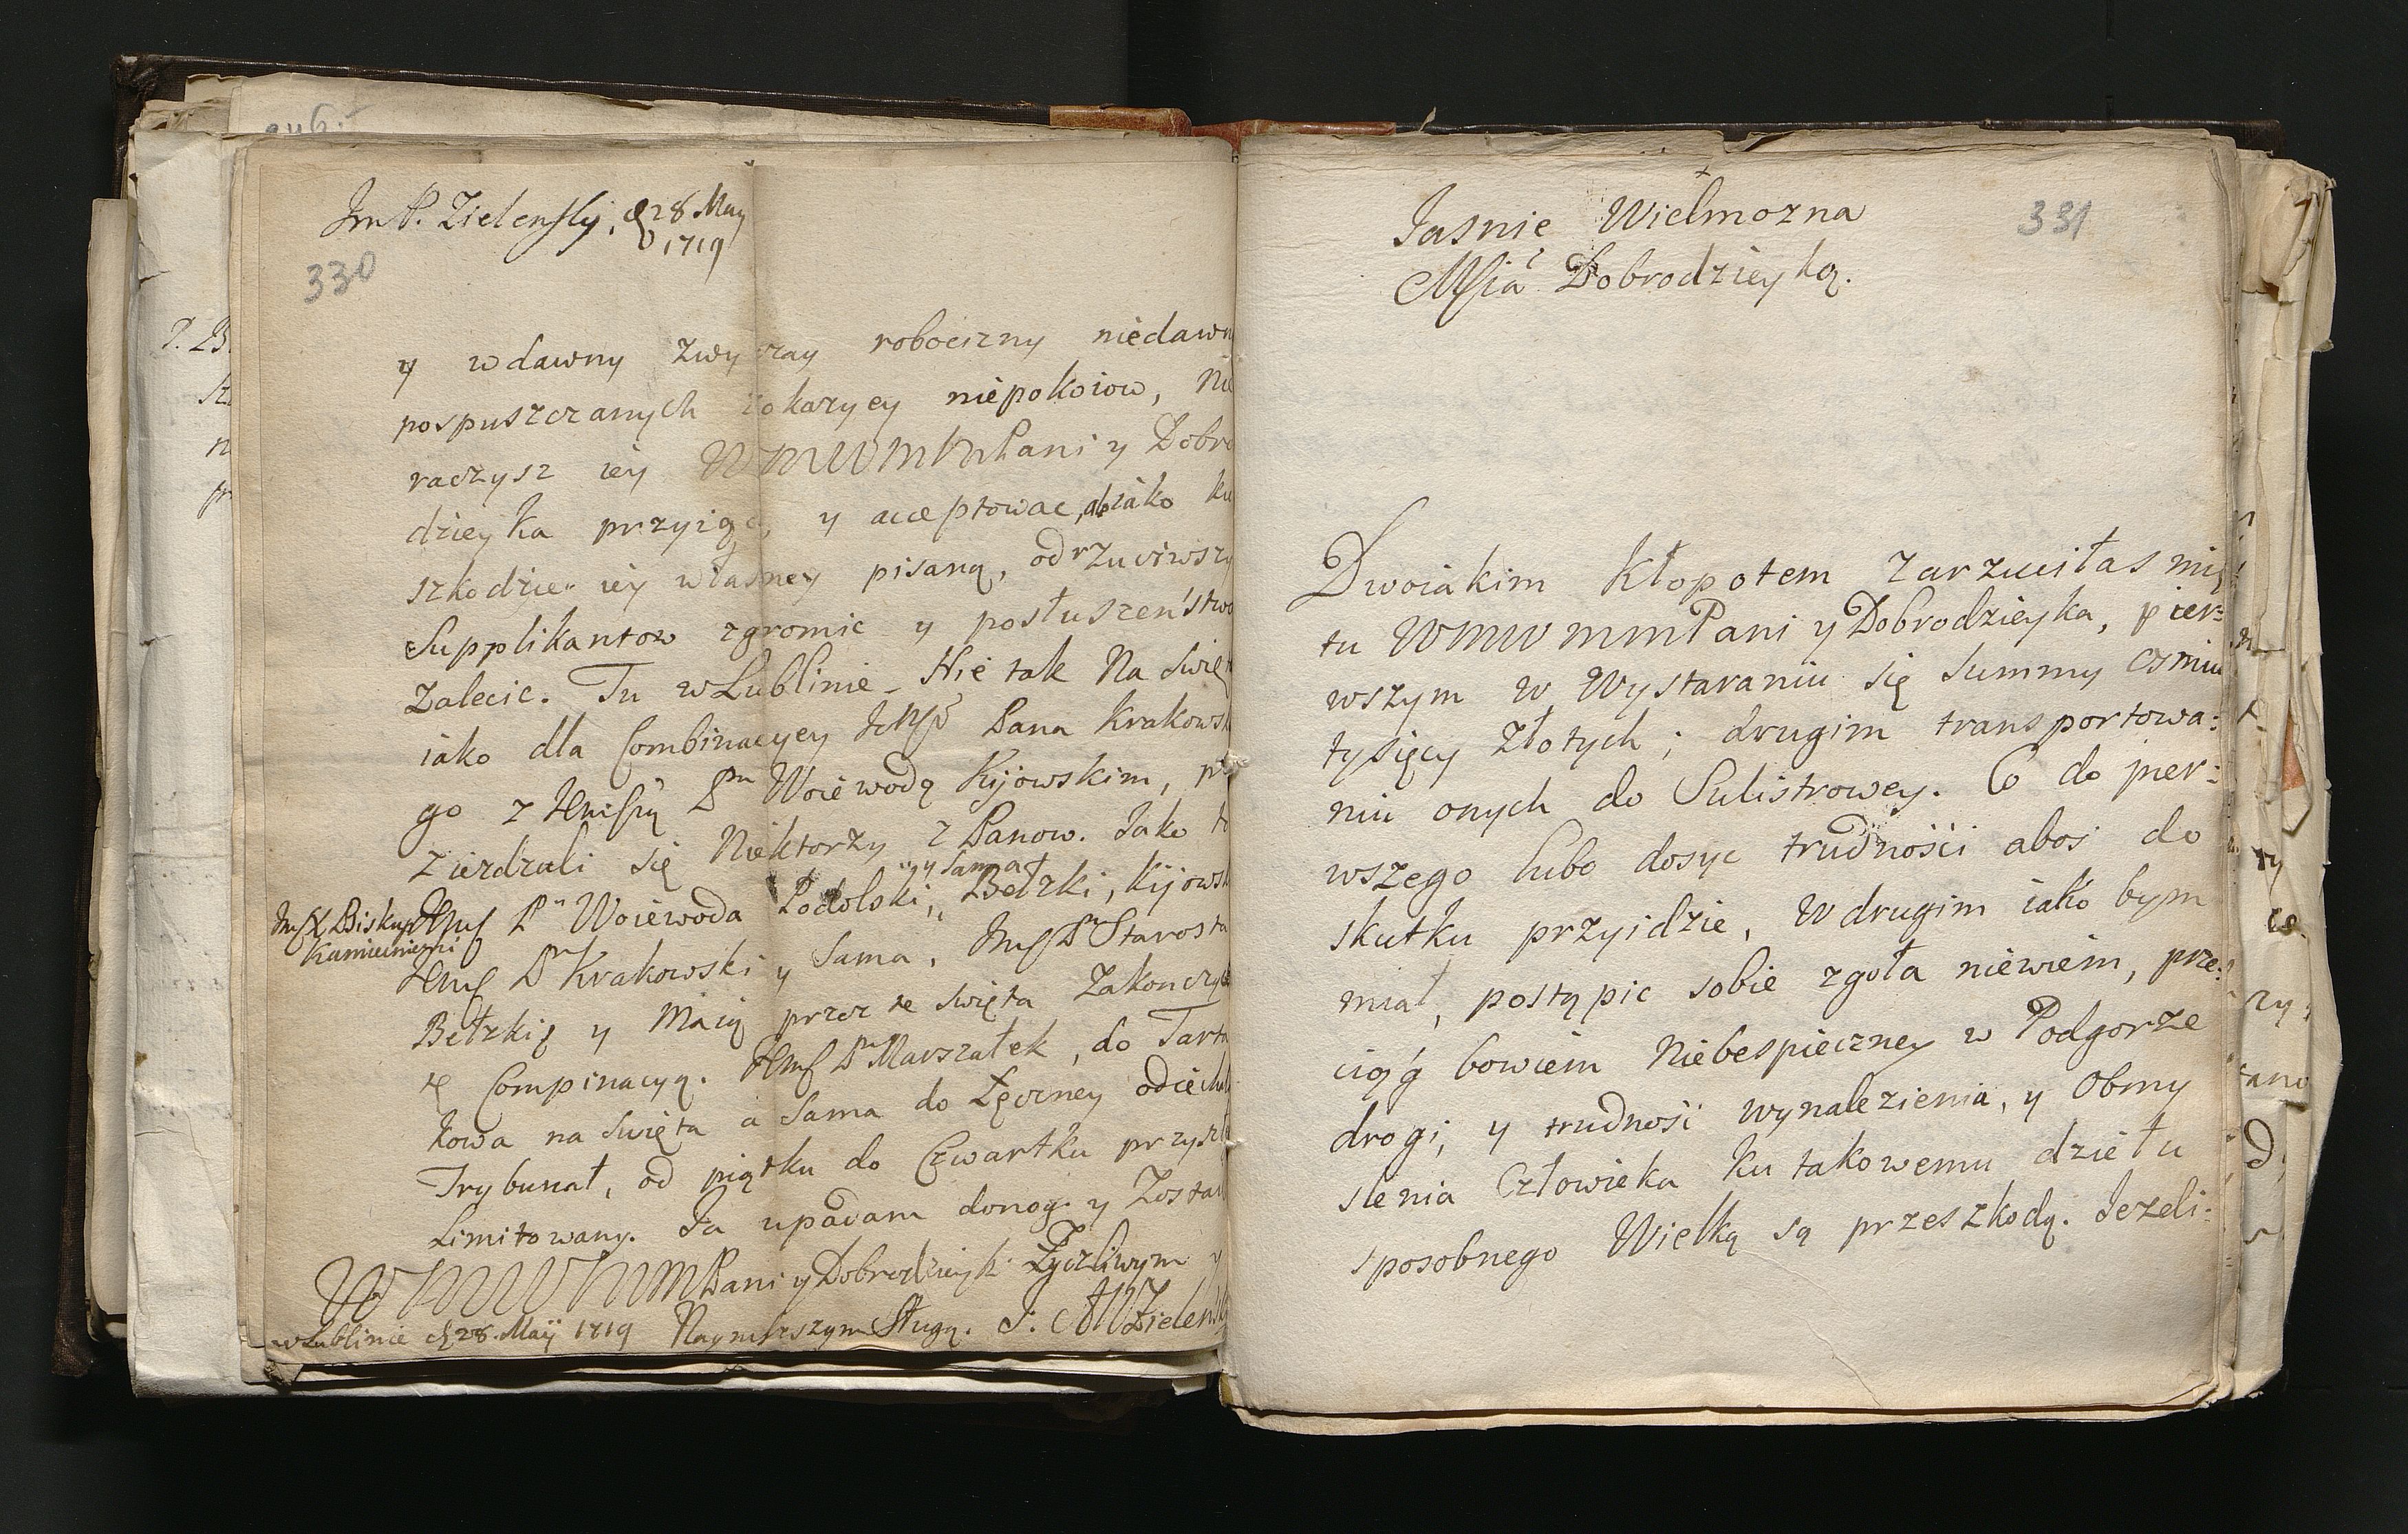 Jm P. Zielensky, d 28 May
1719
330
y w dawny zwyczay robocizny niedawn
pospuszczanych zokazyey niepokoiow, nie
raczysz iey WMWMMPani y Dobro
dzieyka przyiąć, y acceptowac, ale iako ku
szkodzie iey własney pisaną, odrzuciwszy
Supplikantow zgromic y posłuszeństwo
Zalecic. Tu w Lublinie Nie tak Na Swięt
iako dla Combinacyey Pana Krakowsk
go z Woiewodą Kijowskim,
zieżdzali się Niektorzy z Panow. Jako to
Jmſ X Biskup
Kamieniecki
Jmſ Pn Woiewoda Podolski y Sama, Bełzki, Kijowsk
Jmſ Pn Krakowski y Sama, Jmſ Pn Starosta
Bełzki y Maią przez te swięta Zakonczyc
tę Compinacyą. Jmſ Pn Marszałek, do Tarta
kowa na swięta a Sama do Łęczney odiechali
Trybunał, od piątku do Czwartku przyszł
Limitowany. Ja upadam donog y Zostaię
WMWMMPani y Dobrodzieyki Życzliwym y
w Lublinie d 28. Maij 1719 Naynizszym Sługą. J. AW Zielensk
331
Jasnie Wielmozna
Mſcia Dobrodzieyko.
Dwoiakim Kłopotem zarzuciłas mię
tu WMWMMPani y Dobrodzieyka, pier:
wszym w Wystaraniu się Summy czmiu
tysięcy Złotych; drugim transportowa:
niu onych do Sulistrowey. Co do pier:
wszego lubo dosyc trudności aboś do
skutku przyidzie, W drugim iako bym
miał, postąpic sobie zgoła niewiem, prze:
ciąg bowiem Niebespieczney w Podgorze
drogi, y trudność wynalezienia, y Obmy
slenia Człowieka Ku takowemu dziełu
sposobnego Wielką są przeszkodą. Jezeli: